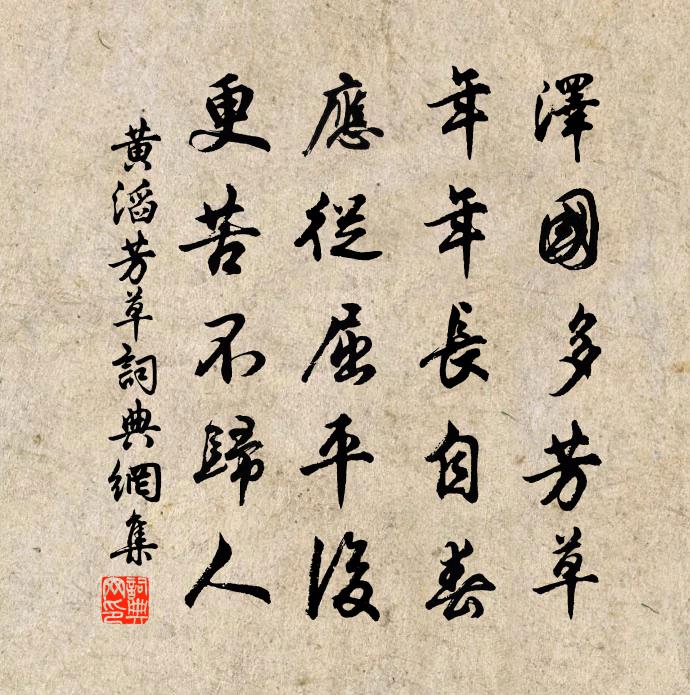 澤國多芳草
年年長自春
應從屈平後
更苦不歸人
黃滔芳草詞典網集
詞典網印